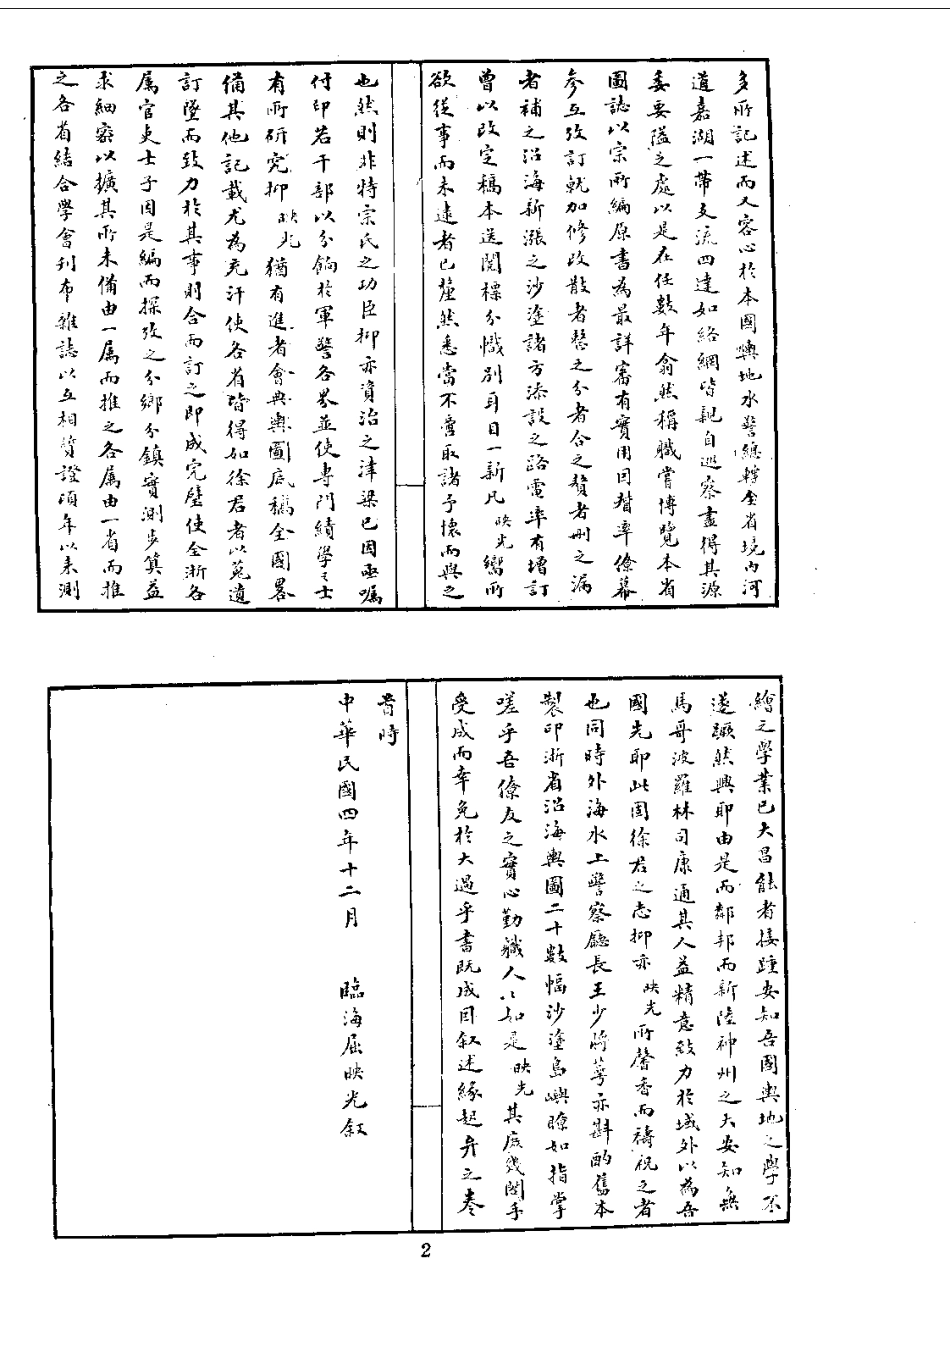 多所記述而又容心於本國輿地水警總轄全省境內河
道嘉湖一帶支流四達如絡網皆親自巡察盡得其源
委要隘之處以是在任數年翕然稱職嘗博覽本省
圖誌以宗所編原書為最詳審有實用因督率僚幕
參互攷訂就加修改散者整之分者合之贅者刪之漏
者補之沿海新漲之沙塗諸方添設之路電率有增訂
曾以改定稿本送閱標分幟別耳目一新凡映光嚮所
欲從事而未逮者已釐然悉當不啻取諸予懷而與之
也然則非特宗氏之功臣抑亦資治之津梁已因亟囑
付印若干部以分餉於軍警各界並使專門績學之士
有所研究抑映光猶有進者會典輿圖底稿全國畧
備其他記載尤為充汗使各省皆得如徐君者以蒐遺
訂墜而致力於其事則合而訂之即成完璧使全浙各
屬官吏士子因是編而探攷之分鄉分鎮實測步算益
求細密以擴其所未備由一屬而推之各屬由一省而推
之各省結合學會刊布雜誌以互相質證頃年以來測
繪之學業已大昌能者接踵安知吾國輿地之學不
遂蹶然興耶由是而鄰邦而新陸神州之大安知無
馬哥波羅林司康通其人益精意致力於域外以為吾
國先耶此固徐君之志抑亦映光所馨香而禱祝之者
也同時外海水上警察廳長王少將萼亦斟酌舊本
製印浙省沿海輿圖二十數幅沙塗島嶼瞭如指掌
嗟乎吾僚友之實心勤職人人如是映光其庶幾閣手
受成而幸免於大過乎書既成因敘述緣起弁之卷
耑時
中華民國四年十二月 臨海屈映光敘
2